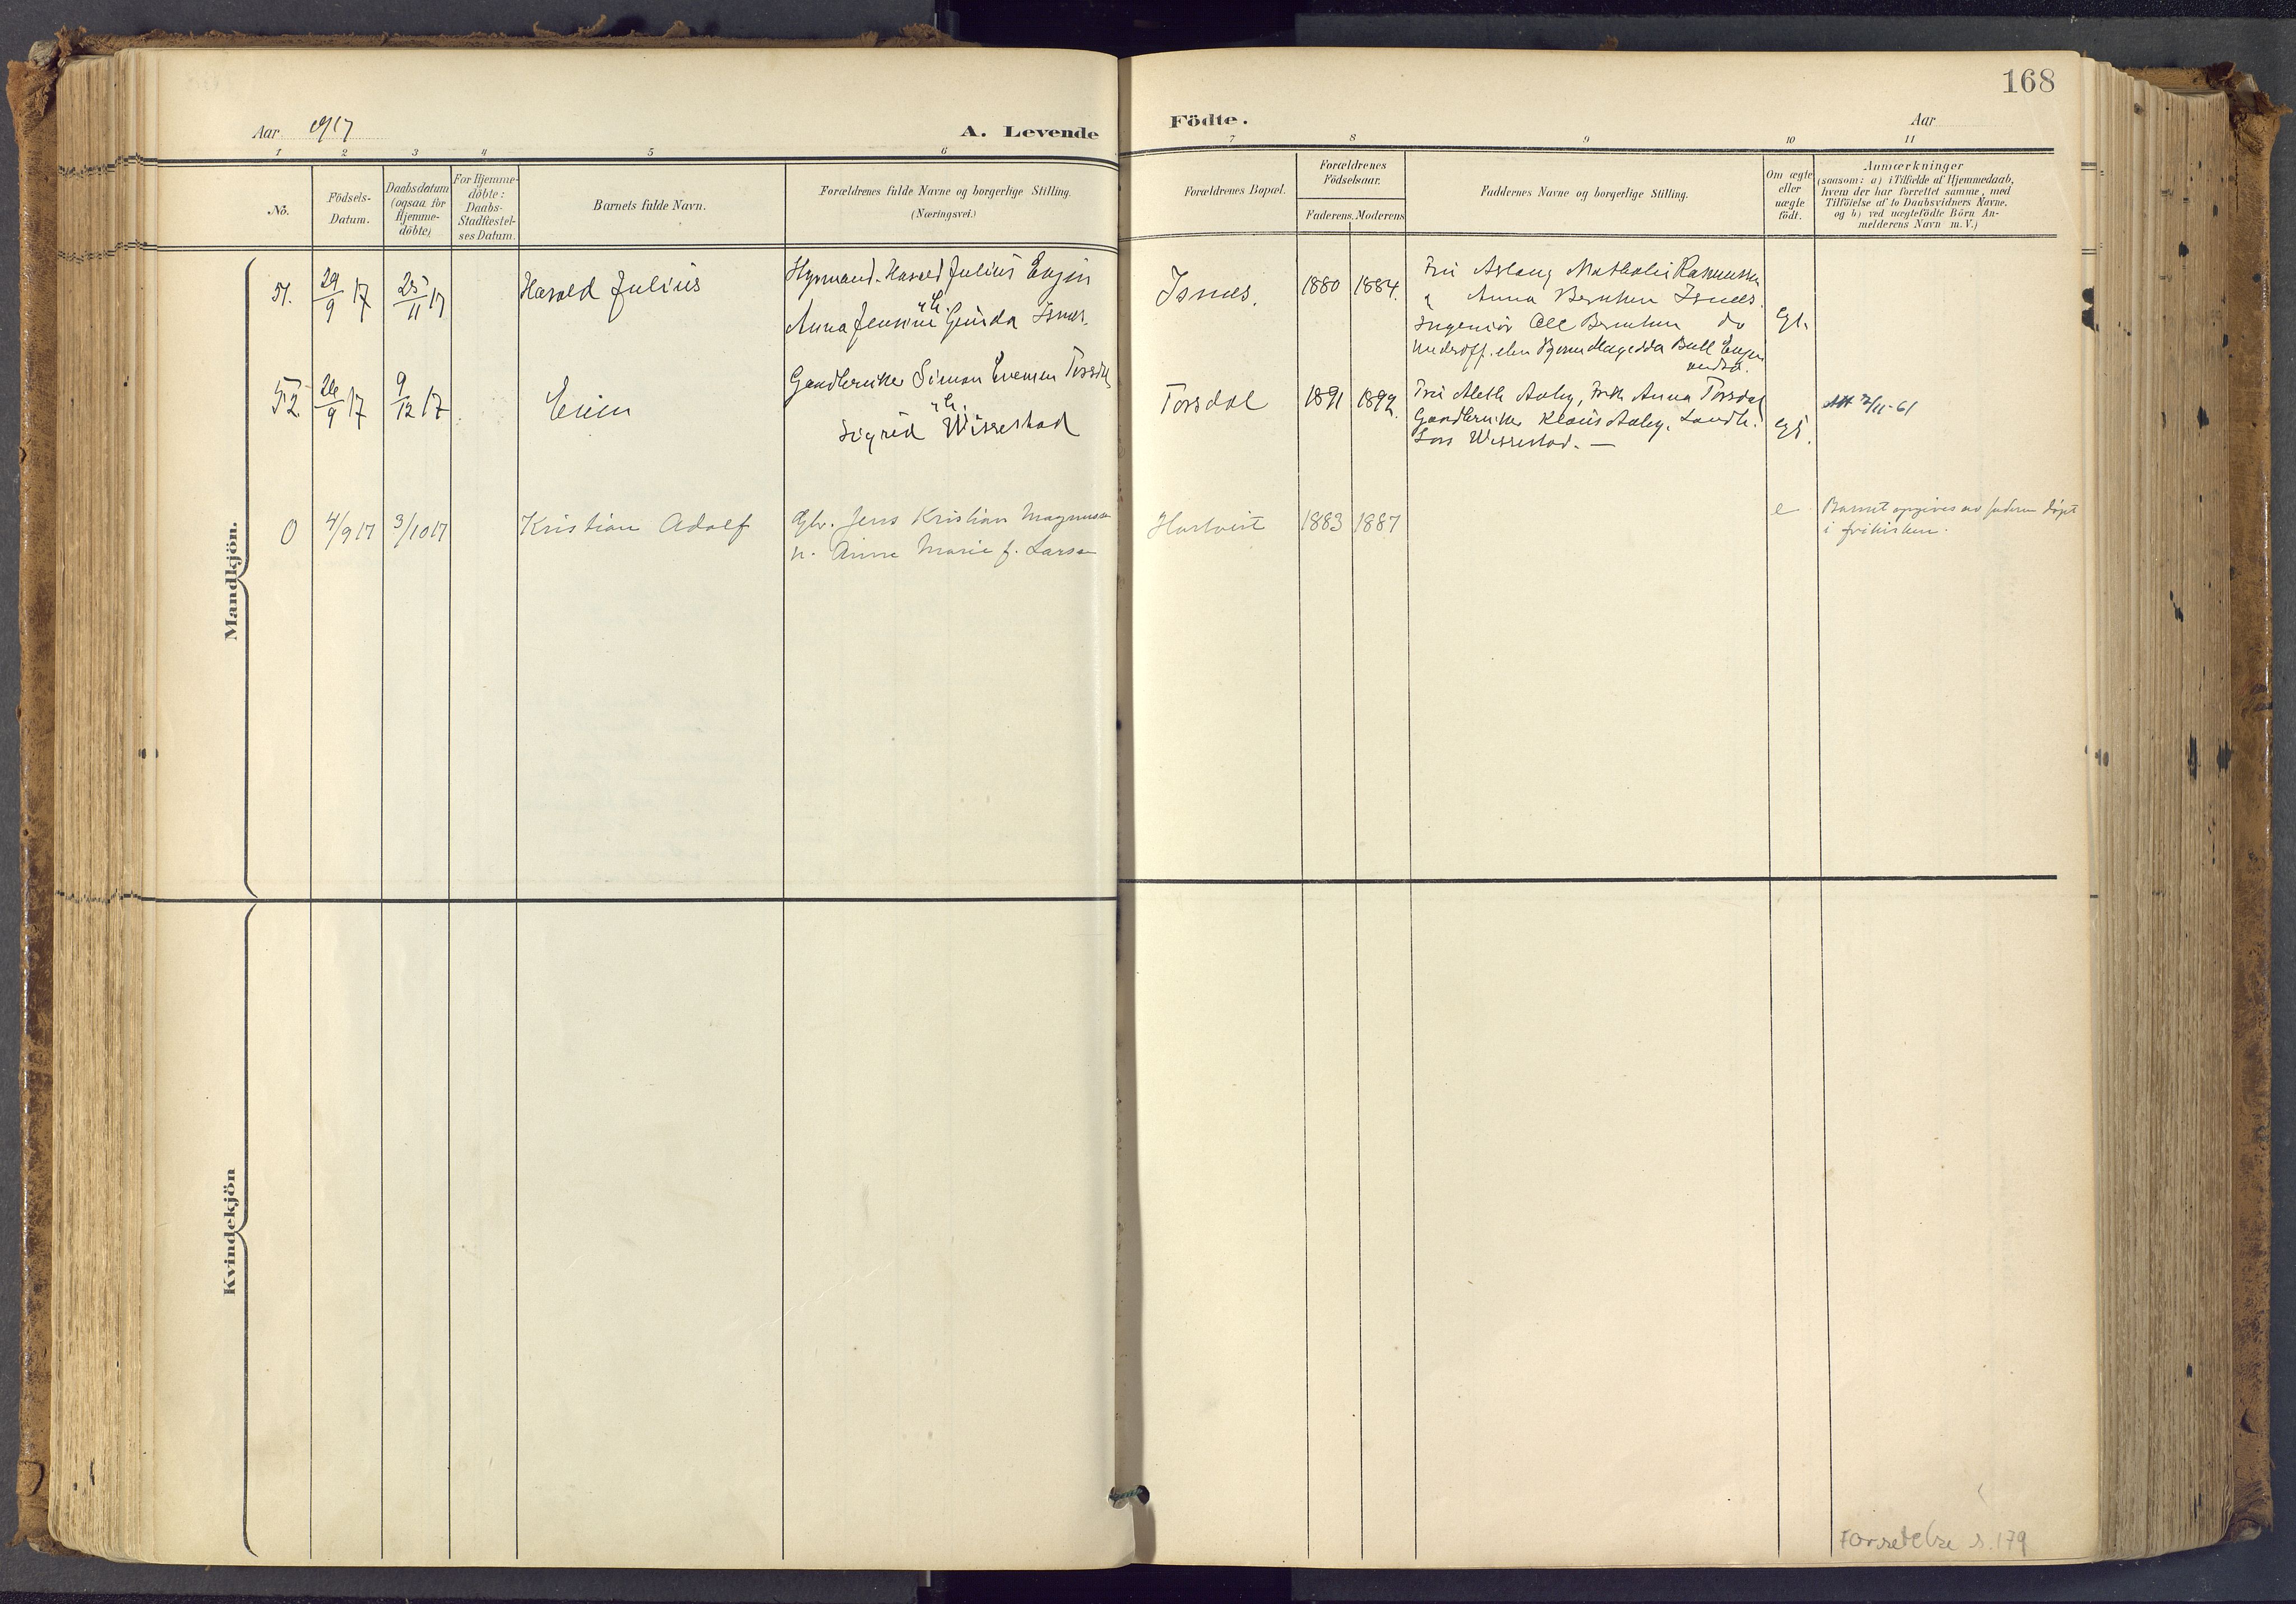 168
Aar 1917
A. Levende
Födte.
Aar
1 2 3 4 5 6 7 8 9 10 11
No.
Födsels-
Datum.
Daabsdatum
(ogsaa for
Hjemme-
döbte)
For Hjemme-
döbte:
Daabs-
Stadfæstel-
ses Datum.
Barnets fulde Navn.
Forældrenes fulde Navne og borgerlige Stilling.
(Næringsvei.)
Forældrenes Bopæl.
Forældrenes
Födselsaar.
Faderens. Moderens
Faddernes Navne og borgerlige Stilling.
Om ægte
eller
uægte
födt.
Anmærkninger
(saasom: a) i Tilfælde af Hjemmedaab,
hvem der har forrettet samme, med
Tilföielse af to Daabsvidners Navne,
og b) ved uægtefödte Börn An-
melderens Navn m.V.)
Mandkjön.
51. 29/9 17 25/11 17 Harald Julius
Harald Julius
Anna Jensine
Isnes. 1880 1884.
Fru Aslaug Mathalie Rasmussen
" Anna Berntsen Isnes.
Ingeniör Berntsen do
Egt.
52 26/9 17 9/12 17
Gaardbruker Simon Evensen Torsdal
Sigrid Wissestad
Torsdal 1891 1892.
Fru Aaby, Frk Anna Torsdal
Gaardbruker Klaus Aaby,
Lars Wissestad. —
egt.
2/11-61
0 4/9 17 3/10 17 Kristian Adolf
Gbr. Jens Kristian Magnussen
h. Anne Marie f. Larsen
Hartveit 1883 1887
e
Barnet opgives av faderen döpt
i frikirken.
Kvindekjön
Forsettelse s. 179